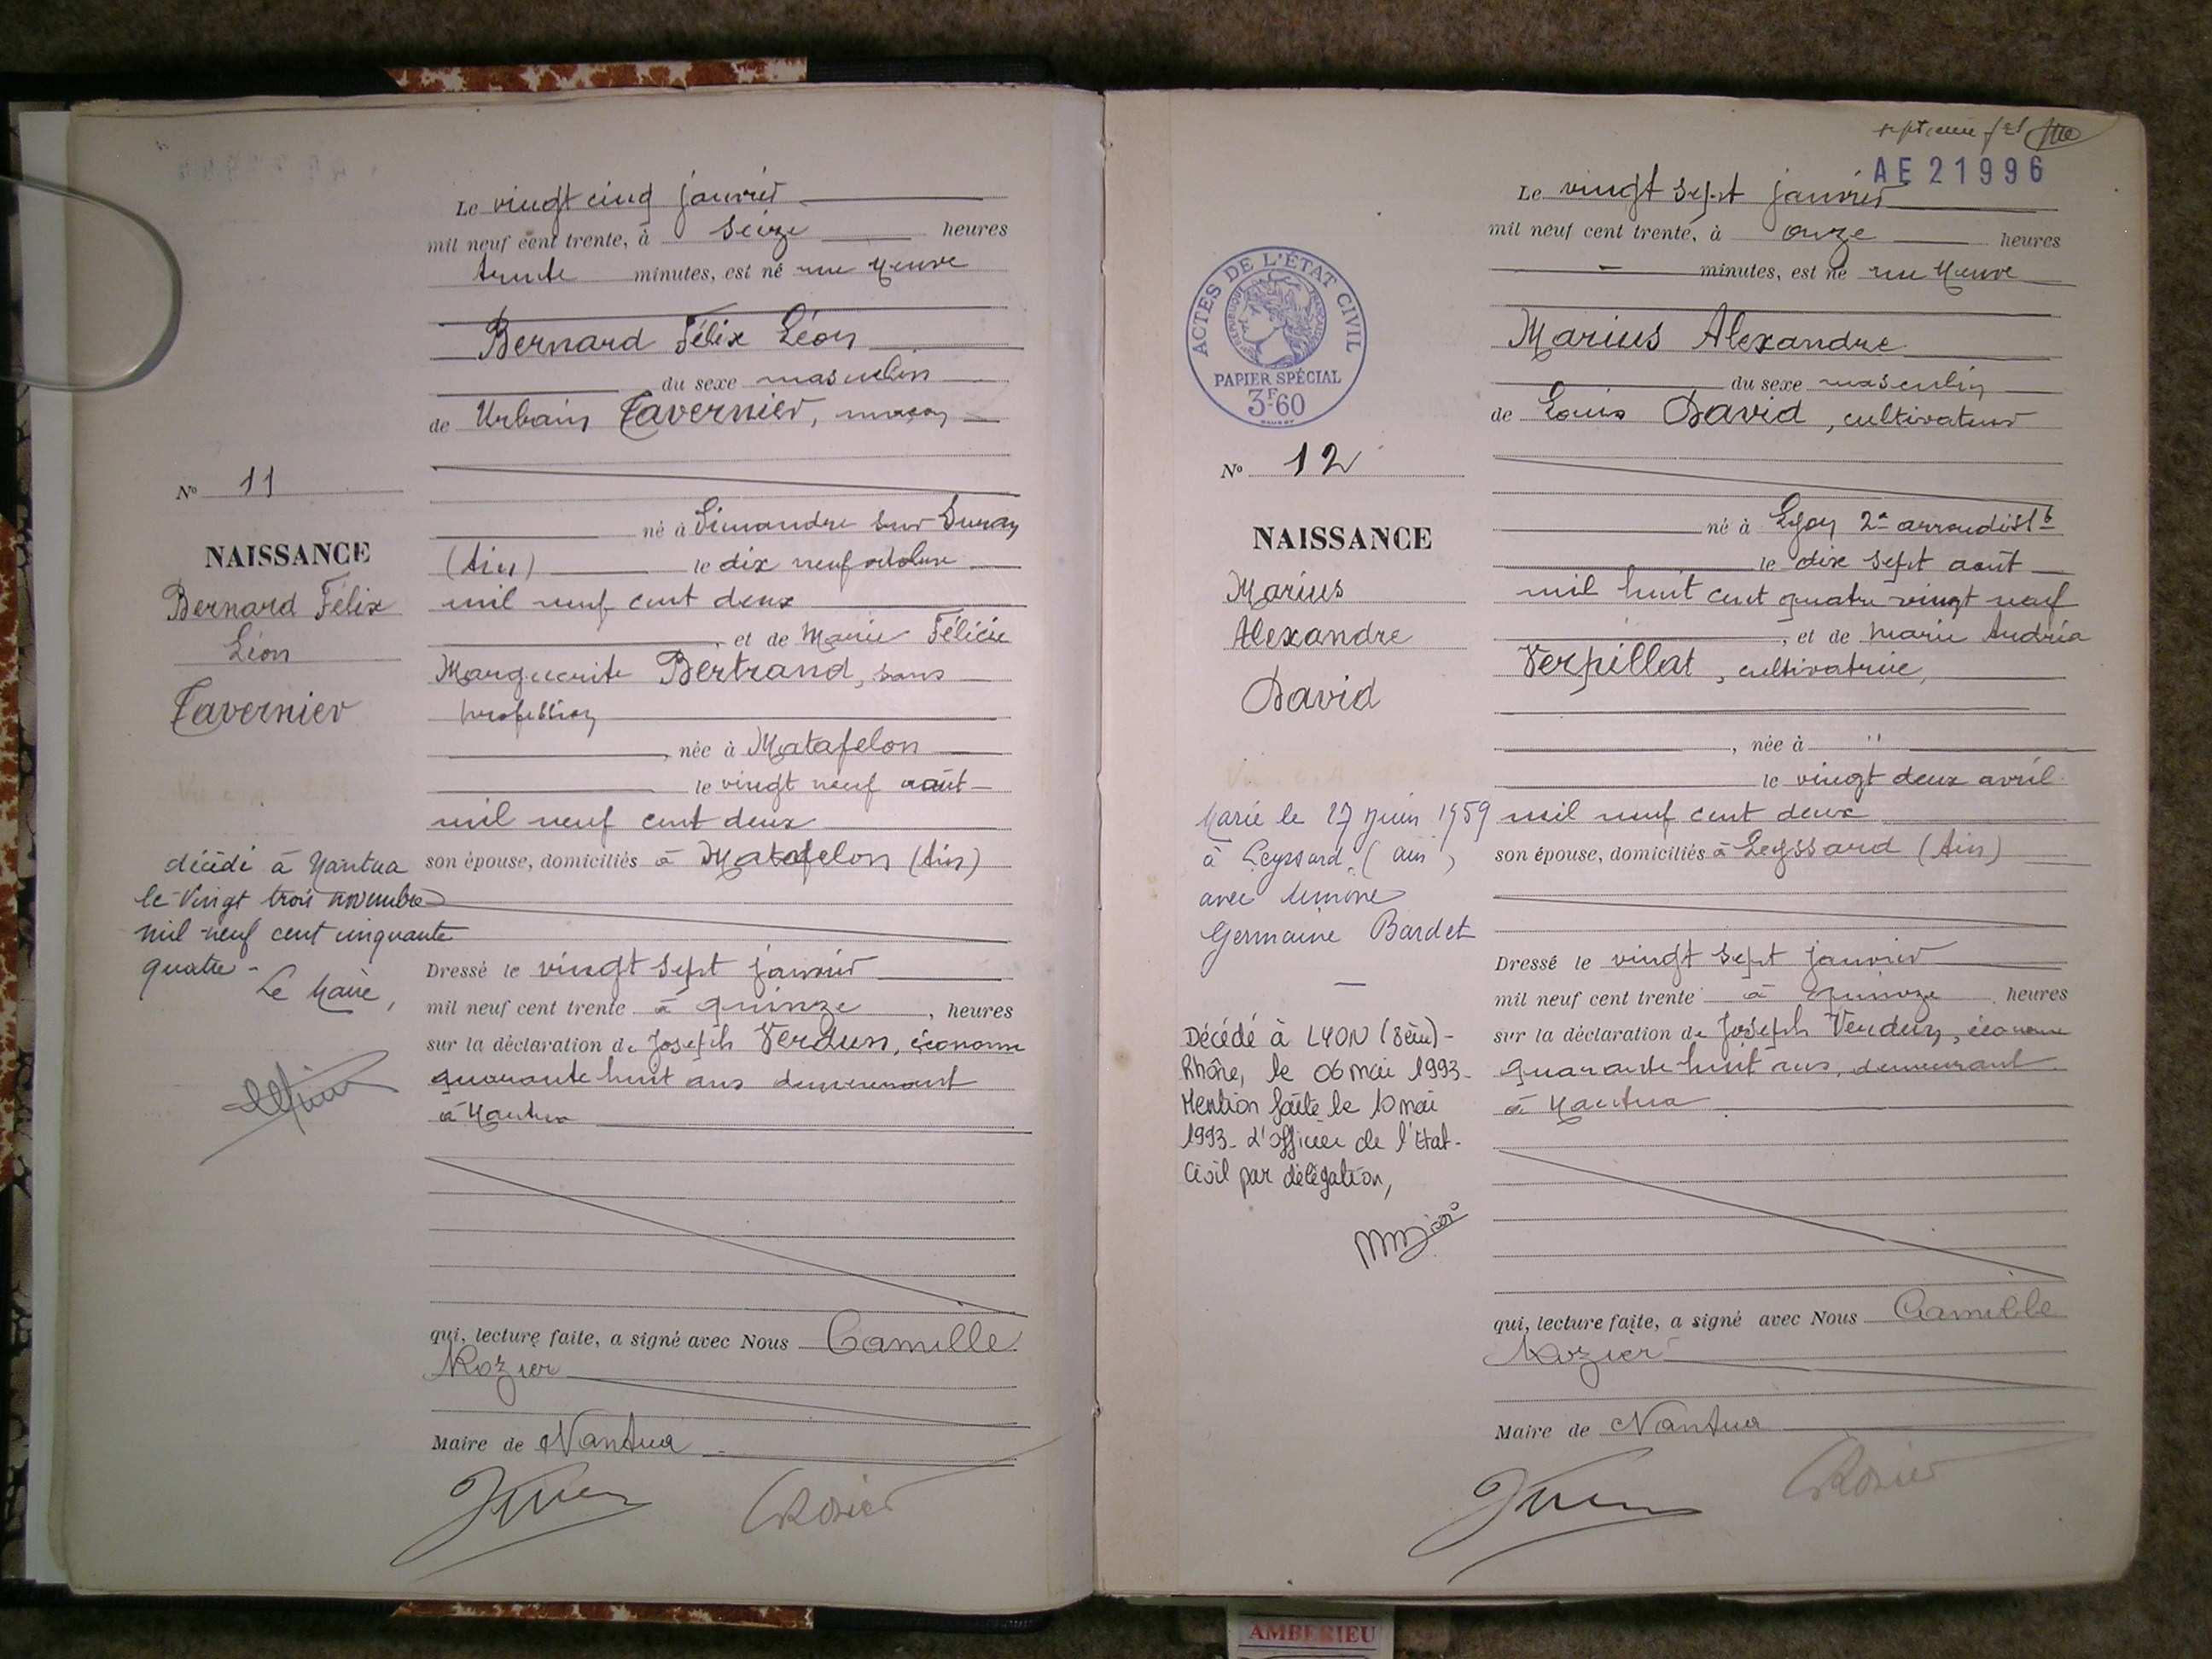 Le vingt cinq janvier
mil neuf cent trente, à seize heures
trente minutes, est né rue Neuve
Bernard Félix Léon
du sexe masculin
de Urbain Tavernier, maçon
né à Simandre sur Suran
(Ain) le dix neuf octobre
mil neuf cent deux
, et de Marie Félicie
Marguerite Bertrand, sans
profession
, née à Matafelon
le vingt neuf août
mil neuf cent deux
son épouse, domiciliés à Matafelon (Ain)
Dressé le vingt sept janvier
mil neuf cent trente à quinze , heures
sur la déclaration de Joseph Verdun, économe
quarante huit ans demeurant
à Nantua
qui, lecture faite, a signé avec Nous Camille
Rozier
Maire de Nantua
CRozier
No 11
NAISSANCE
Bernard Félix
Léon
Tavernier
décédé à Nantua
le Vingt trois novembre
mil neuf cent cinquante
quatre -
Le Maire,
septième
AE 21996
Le vingt sept janvier
mil neuf cent trente, à onze heures
minutes, est né rue Neuve
Marius Alexandre
du sexe masculin
de Louis David, cultivateur
né à Lyon 2e arrondist
le dix sept août
mil huit cent quatre vingt neuf
, et de Marie Andréa
Verpillat, cultivatrice,
, née à "
le vingt deux avril
mil neuf cent deux
son épouse, domiciliés à Leyssard (Ain)
Dressé le vingt sept janvier
mil neuf cent trente à quinze , heures
sur la déclaration de Joseph Verdun, économe
quarante huit ans, demeurant
à Nantua
qui, lecture faite, a signé avec Nous Camille
Rozier
Maire de Nantua
CRozier
ACTES DE L'ÉTAT CIVIL
RÉPUBLIQUE FRANÇAISE
PAPIER SPÉCIAL
3F.60
No 12
NAISSANCE
Marius
Alexandre
David
Marié le 27 juin 1959
à Leyssard (Ain)
avec Simone
Germaine Bardet
Décédé à LYON (8ème) -
Rhône, le 06 mai 1993.
Mention faite le 10 mai
1993. L'officier de l'Etat-
Civil par délégation,
AMBERIEU